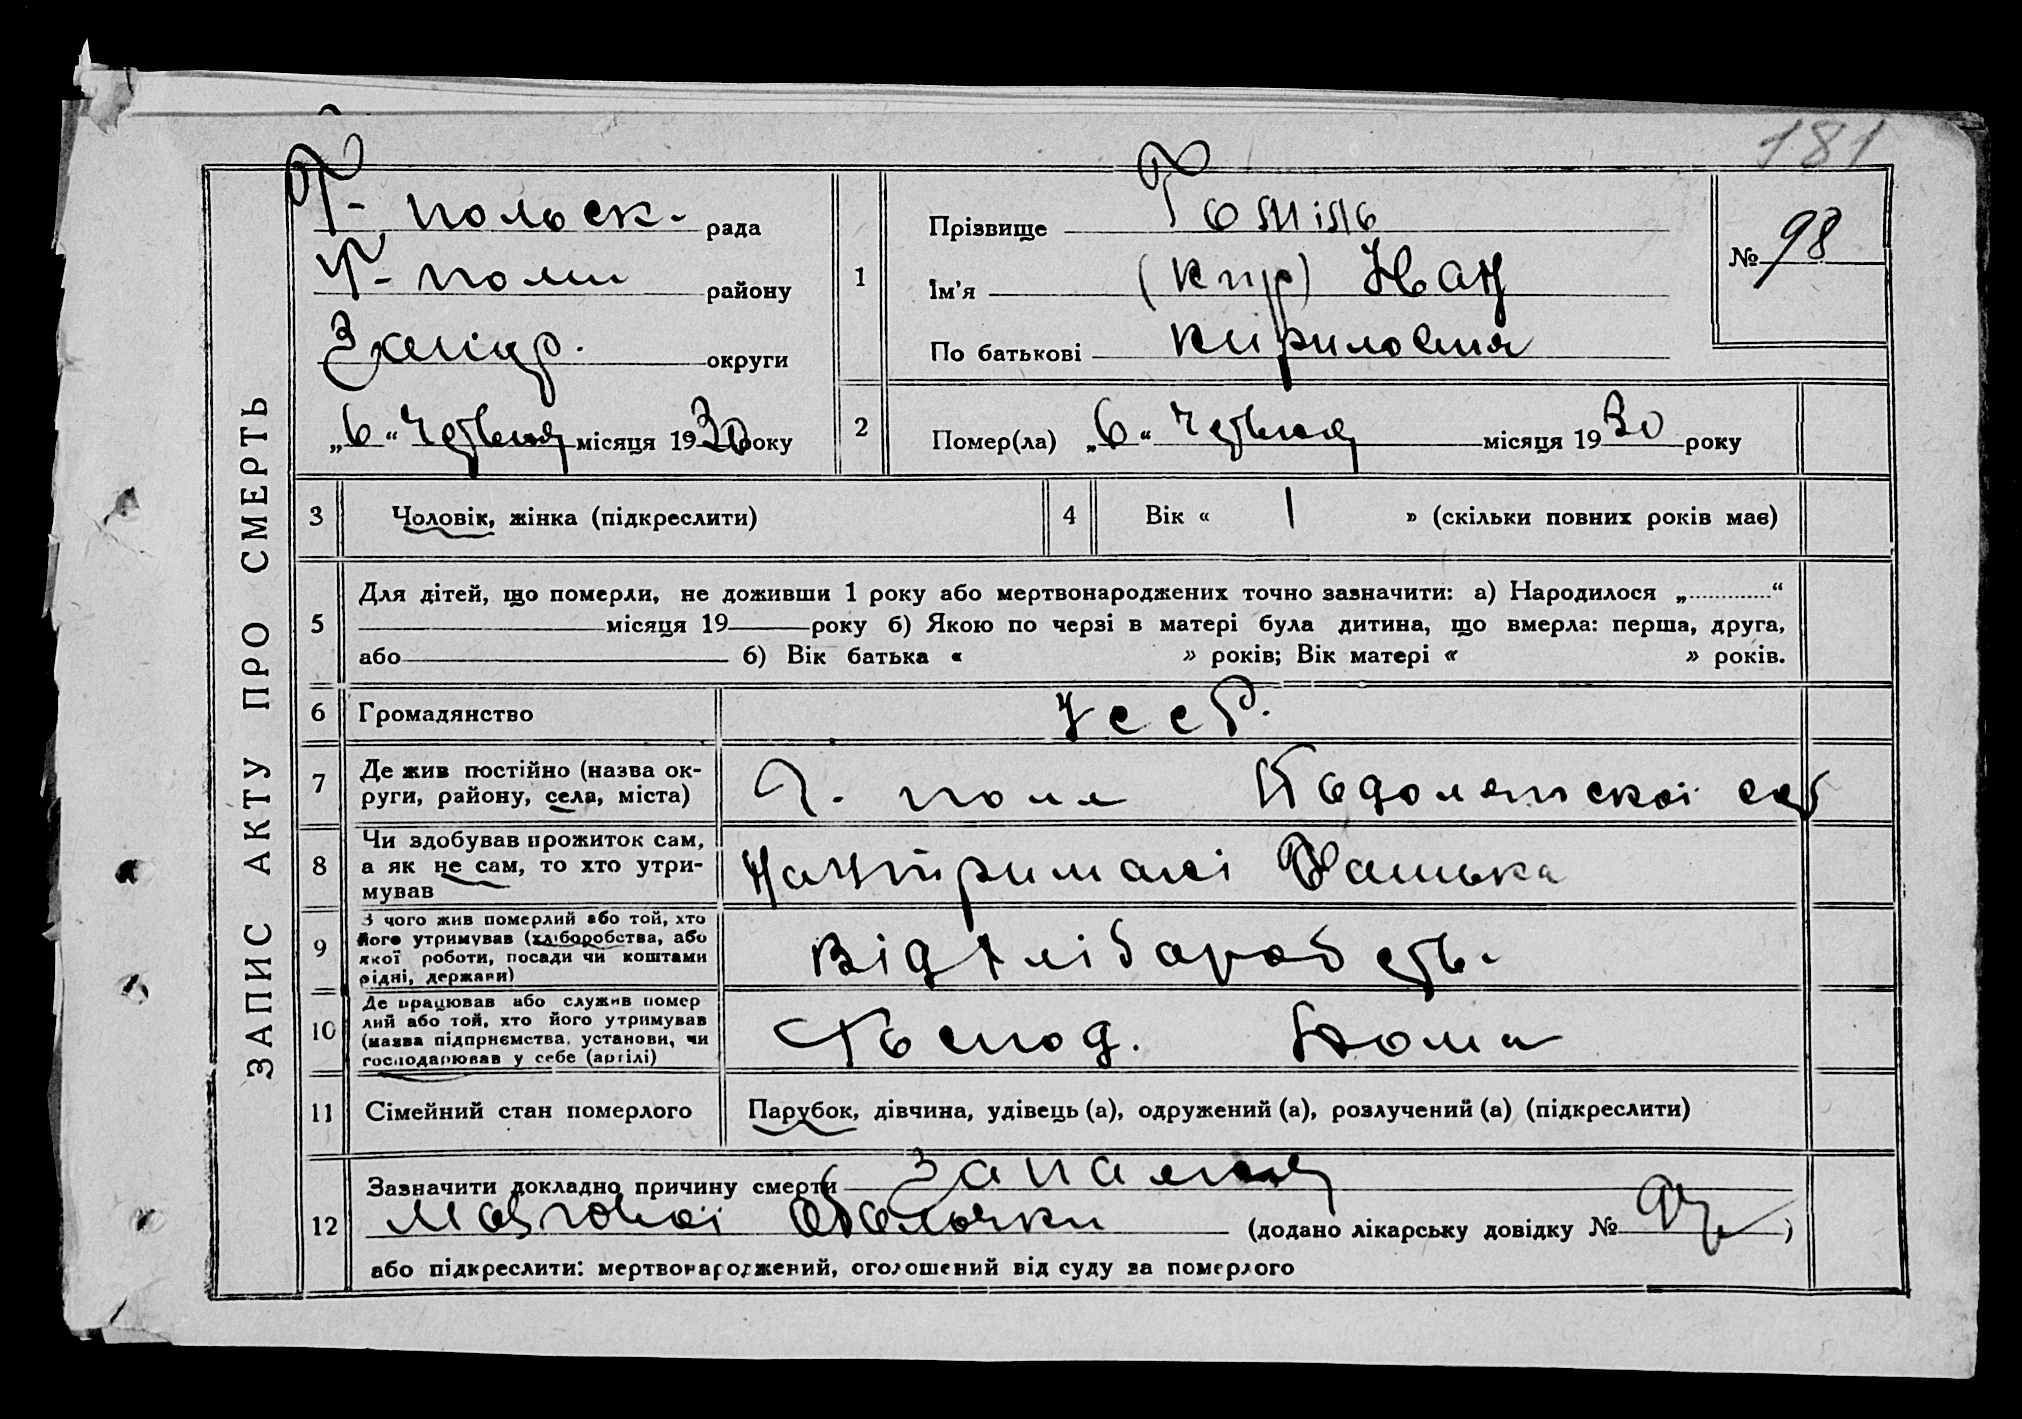 181
Г-польск. рада
Г-поли району
Запор. округи
„6“ червня місяця 1930 року
1
Прізвище
Ім'я (кир) Иван
По батькові Кирилович
№ 98
2
Помер(ла) „6“ червня місяця 1930 року
ЗАПИС АКТУ ПРО СМЕРТЬ
3 Чоловік, жінка (підкреслити)
4 Вік « 1 » (скільки повних років має)
5
Для дітей, що померли, не доживши 1 року або мертвонароджених точно зазначити: а) Народилося „ “
місяця 19 року б) Якою по черзі в матері була дитина, що вмерла: перша, друга,
або б) Вік батька « » років; Вік матері « » років.
6 Громадянство Усср.
7 Де жив постійно (назва ок-
руги, району, села, міста)
Г. поле
8 Чи здобував прожиток сам,
а як не сам, то хто утри-
мував
На утриманні батька
9 З чого жив померлий або той, хто
його утримував (хліборобства, або
якої роботи, посади чи коштами
рідні, держави)
Від хліборобств.
10 Де працював або служив помер
лий або той, хто його утримував
(назва підприємства, установи, чи
господарював у себе (артілі)
Господ. дома
11 Сімейний стан померлого Парубок, дівчина, удівець (а), одружений (а), розлучений (а) (підкреслити)
12
Зазначити докладно причину смерти запалення
мозгової оболочки (додано лікарську довідку № )
або підкреслити: мертвонароджений, оголошений від суду за померлого